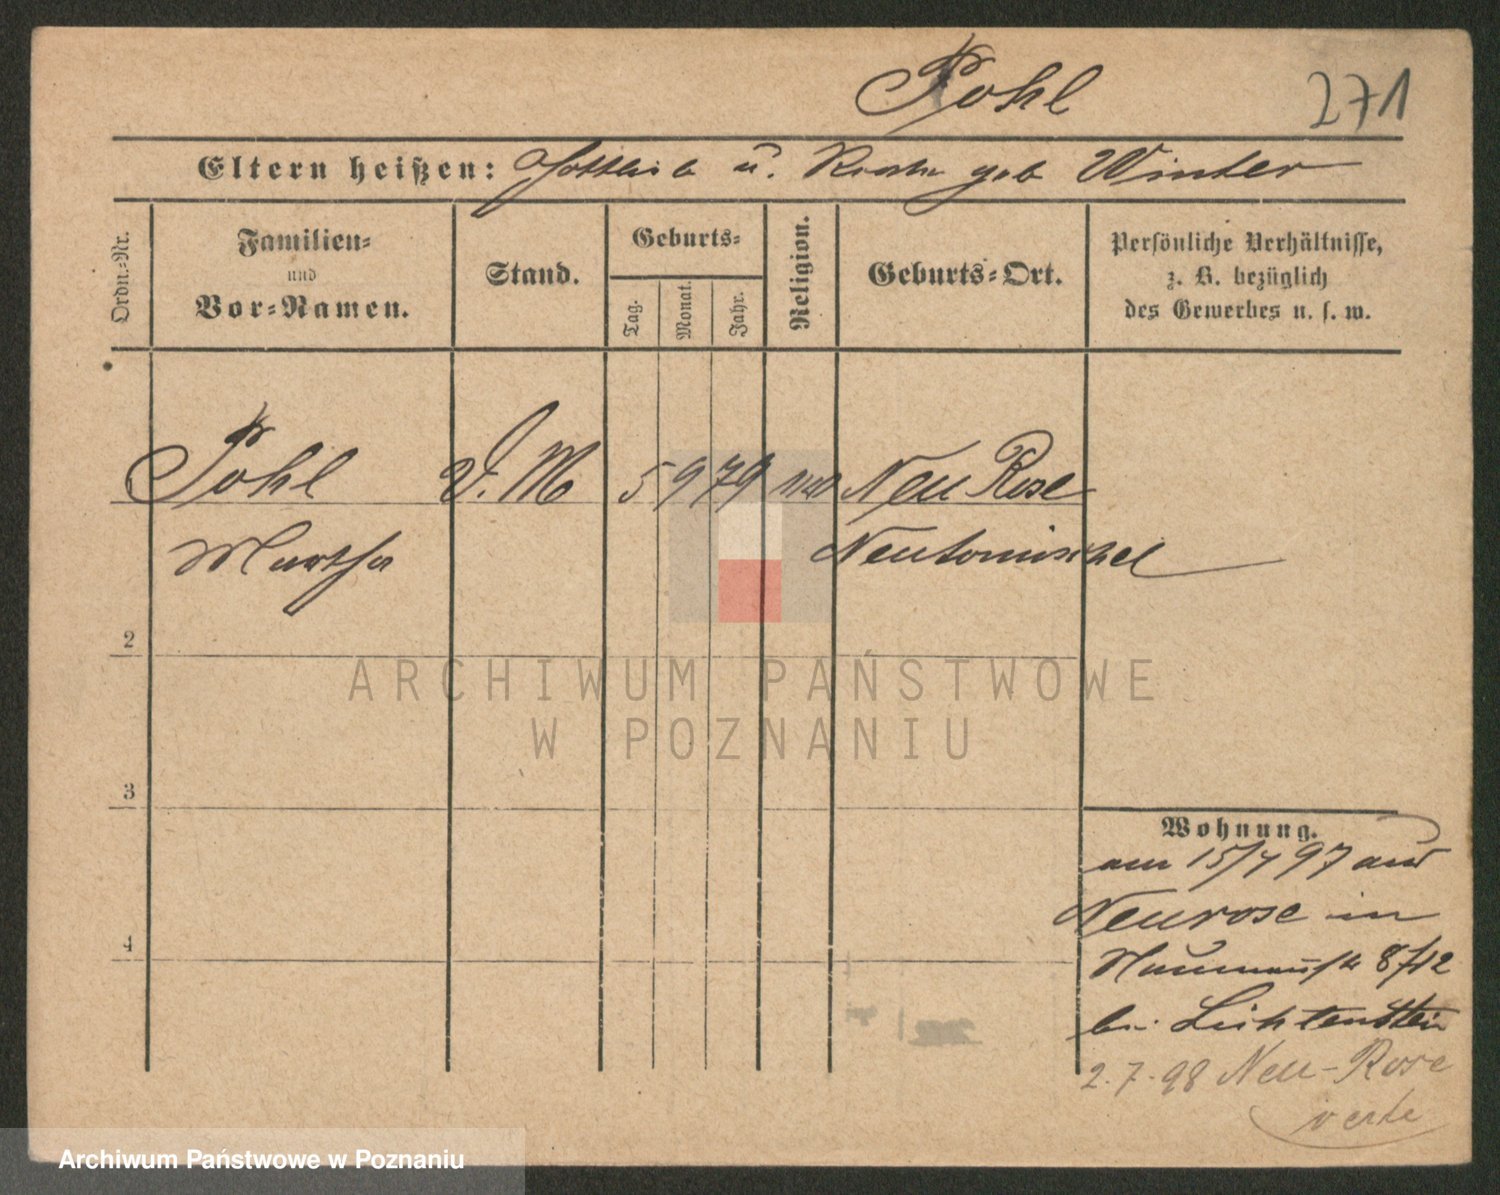 Pohl
271
Eltern heißen: Gottlieb u. geb Winter
Ordn.-Nr.
Familien-
und
Vor-Namen.
Stand.
Geburts-
Tag.
Monat.
Jahr.
Religion.
Geburts-Ort.
Persönliche Verhältnisse,
z. B. bezüglich
des Gewerbes u. s. w.
Pohl D. M 5 9 79 Neu Rose
Martha Neutomischel
2
3
4
Wohnung.
am 15/4 97 aus
Neurose in
Naumannstr 8/12
bei Lichtenstein
2.7.98 Neu-Rose
verte
ARCHIWUM PAŃSTWOWE
W POZNANIU
Archiwum Państwowe w Poznaniu